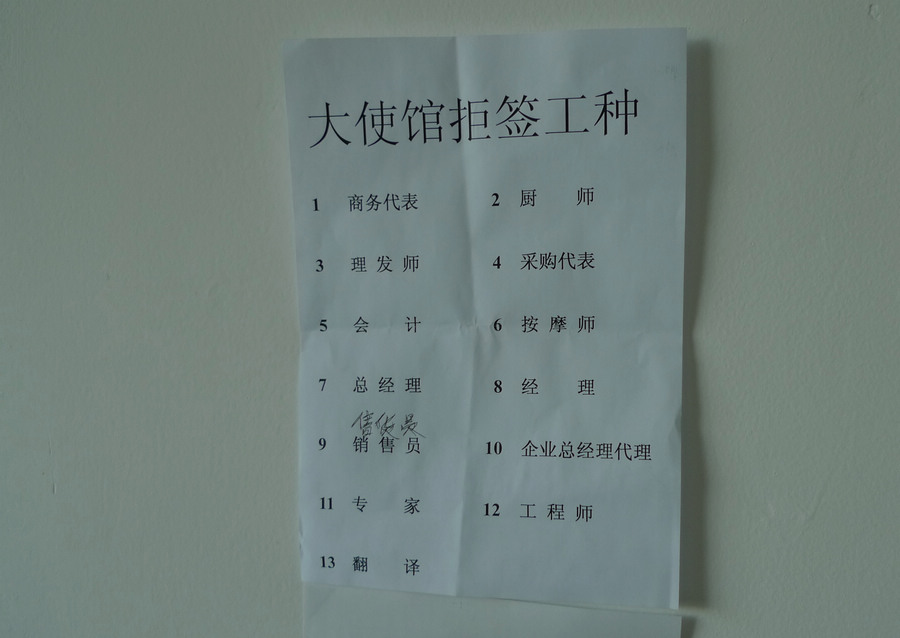 大使馆拒签工种
1 商务代表 2 厨 师
3 理 发 师 4 采购代表
5 会 计 6 按 摩 师
7 总 经 理 8 经 理
售货员
9 销 售 员 10 企业总经理代理
11 专 家 12 工 程 师
13 翻 译